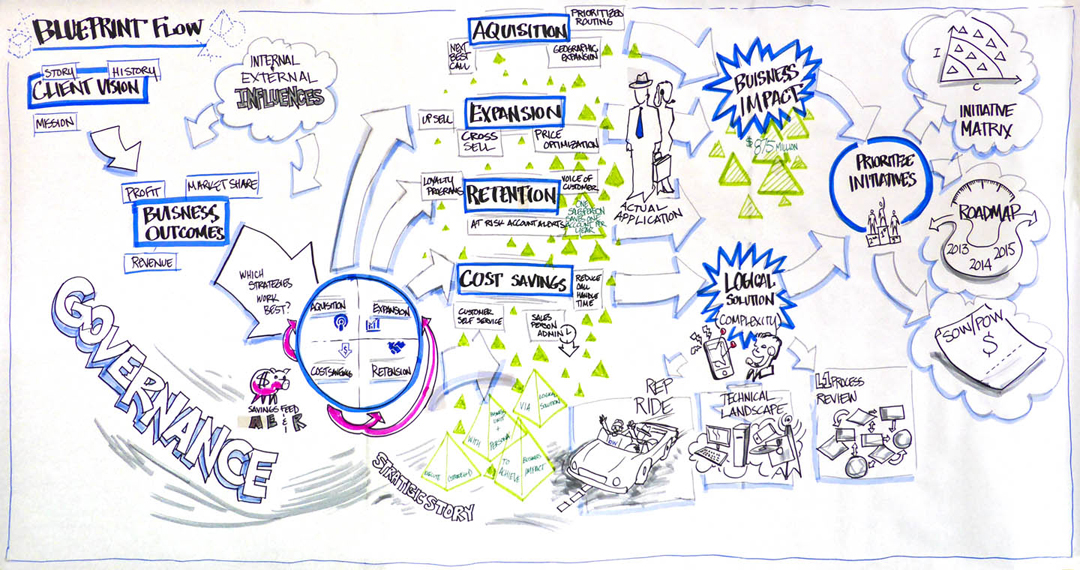 BLUEPRINT FLOW
STORY
HISTORY
CLIENT VISION
MISSION
INTERNAL
& EXTERNAL
INFLUENCES
PROFIT
MARKET SHARE
BUISNESS
OUTCOMES
REVENUE
WHICH
STRATEGIES
WORK
BEST?
AQUISITION
EXPANSION
COST SAVINGS
RETENTION
SAVINGS FEED
A E & R
GOVERNANCE
STRATEGIC STORY
AQUISITION
PRIORITIZED
ROUTING
NEXT
BEST
CALL
GEOGRAPHIC
EXPANSION
EXPANSION
UPSELL
CROSS
SELL
PRICE
OPTIMIZATION
LOYALTY
PROGRAMS
VOICE OF
CUSTOMER
RETENTION
AT RISK ACCOUNT ALERTS
ONE
SALESPERSON
SAVES ONE
ACCOUNT PER
YEAR
COST SAVINGS
REDUCE
CALL
HANDLE
TIME
CUSTOMER
SELF SERVICE
SALES
PERSON
ADMIN
WITH
PERSONA
VIA
LOGICAL
SOLUTION
TO
ACHIEVE
BUISNESS
IMPACT
ACTUAL
APPLICATION
BUISNESS
IMPACT
$875 MILLION
LOGICAL
SOLUTION
COMPLEXITY
REP
RIDE
TECHNICAL
LANDSCAPE
L1 PROCESS
REVIEW
PRIORITIZE
INITIATIVES
1
2
3
I
C
INITIATIVE
MATRIX
ROADMAP
2013
2014
2015
SOW/POW
$